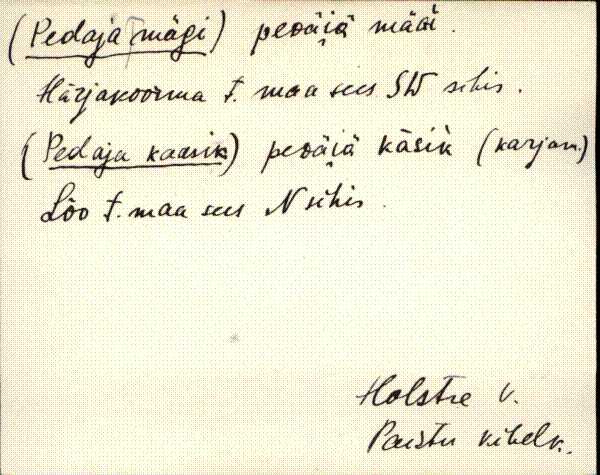 (Pedaja mägi) peᴅäi̯ä määi.
Härjakoorma t. maa sees SW sihis.
(Pedaja kaasik) peᴅäi̯ä käsik (karjam.)
Lõo t. maa sees N sihis.
Holstre v.
Paistu kihelk.